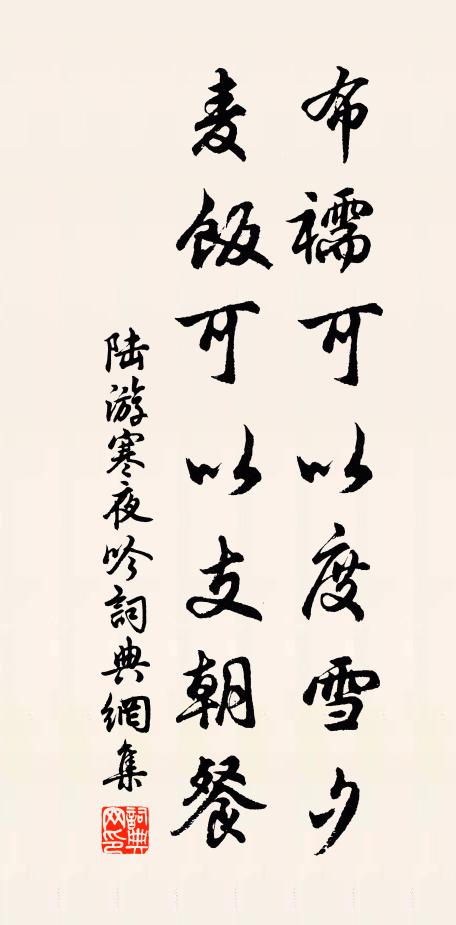 布襦可以度雪夕
麦飯可以支朝餐
陆游寒夜吟詞典網集
詞典网印